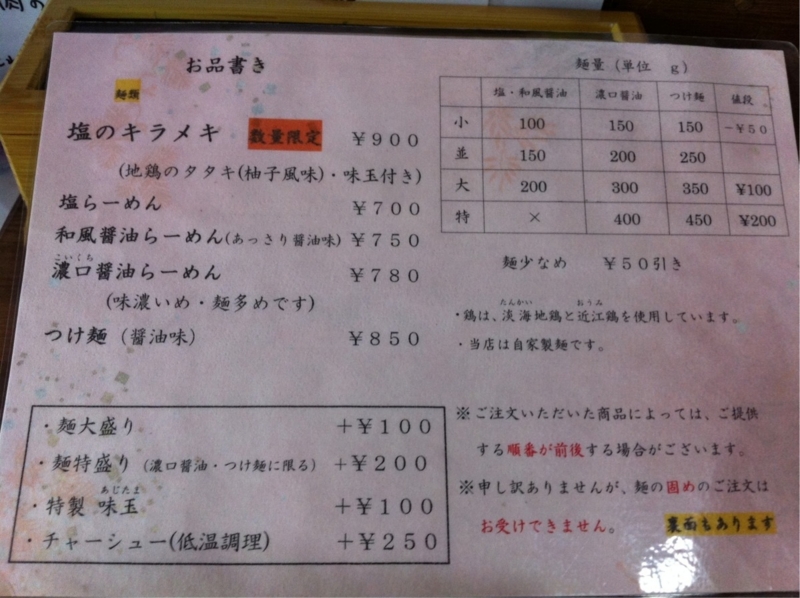 お品書き
麺類
塩のキラメキ 数量限定 ￥９００
(地鶏のタタキ(柚子風味)・味玉付き)
塩らーめん ￥７００
和風醤油らーめん(あっさり醤油味) ￥７５０
こいくち
濃口醤油らーめん ￥７８０
(味濃いめ・麺多めです)
つけ麺（醤油味） ￥８５０
・麺大盛り ＋￥１００
・麺特盛り（濃口醤油・つけ麺に限る） ＋￥２００
あじたま
・特製 味玉 ＋￥１００
・チャーシュー(低温調理) ＋￥２５０
麺量（単位 ｇ）
塩・和風醤油 濃口醤油 つけ麺 値段
小 100 150 150 −￥５０
並 150 200 250
大 200 300 350 ¥100
特 × 400 450 ¥200
麺少なめ ￥５０引き
たんかい おうみ
・鶏は、淡海地鶏と近江鶏を使用しています。
・当店は自家製麺です。
※ご注文いただいた商品によっては、ご提供
する順番が前後する場合がございます。
※申し訳ありませんが、麺の固めのご注文は
お受けできません。
裏面もあります